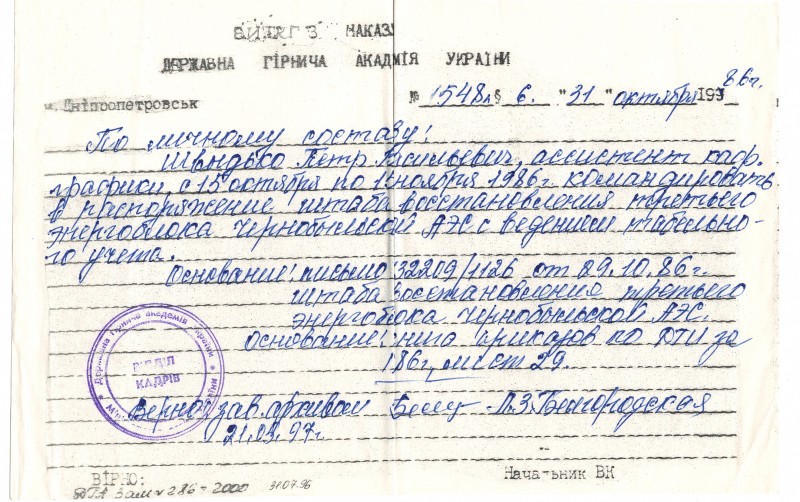 ВИТЯГ З НАКАЗУ
ДЕРЖАВНА ГІРНИЧА АКАДМІЯ УКРАЇНИ
м. Дніпропетровськ № 1548л § 6. "31" октября 199 86г.
По личному составу:
Швидько Петр Васильевич, ассистент каф.
графики, с 15 октября по 1 ноября 1986г. командировать
в распоряжение штаба восстановления третьего
энергоблока Чернобыльской АЭС с ведением табельно-
го учета.
Основание: письмо 32209/1126 от 29.10.86г.
штаба восстановление третьего
энергоблока Чернобыльской АЭС.
Основание: книга приказов по ДГИ за
186г, лист 29.
Державна гірнича академія України
ВІДДІЛ
КАДРІВ
Верно: зав. архивом Л.З.
21.03.97г.
ВІРНО: Начальник ВК
ДГА Зам. 286-2000 31.07.96